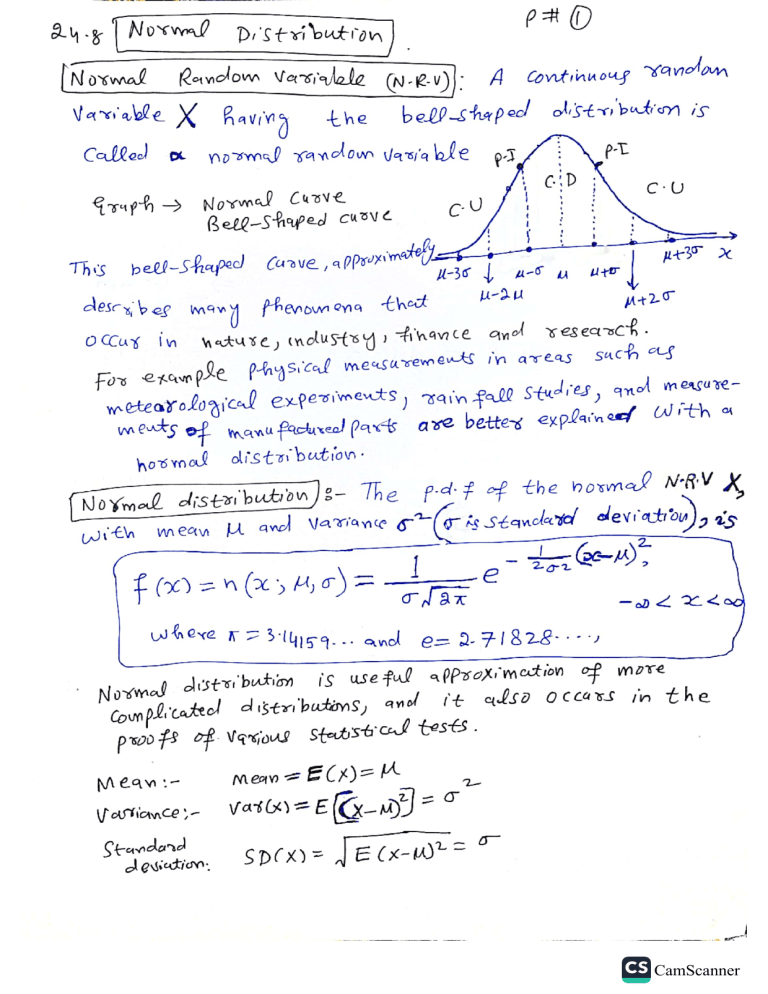 P# ①
24.8 Normal Distribution.
Normal Random Variable (N.R.V): A continuous random
Variable X having the bell-shaped distribution is
Called a normal random variable
P.I P.I
C.U C.D C.U
Graph → Normal Curve
Bell-Shaped curve
This bell-shaped curve, approximately
μ-3σ μ-σ μ μ+σ μ+3σ x
μ-2μ μ+2σ
describes many phenomena that
occur in nature, industry, finance and research.
For example physical measurements in areas such as
metearological experiments, rain fall studies, and measure-
ments of manufactured parts are better explained with a
normal distribution.
Normal distribution :- The p.d.f of the normal N.R.V X,
with mean μ and variance σ² (σ is standard deviation), is
f(x) = n(x; μ,σ) = 1/(σ√2π) e^{-1/(2σ²) (x-μ)²},
-∞ < x < ∞
where π = 3.14159... and e = 2.71828....,
Normal distribution is useful approximation of more
complicated distributions, and it also occurs in the
proofs of various statistical tests.
Mean:- mean = E(X) = μ
Variance:- Var(X) = E[(X-μ)²] = σ²
Standard
deviation: SD(X) = √E(X-μ)² = σ
CS CamScanner